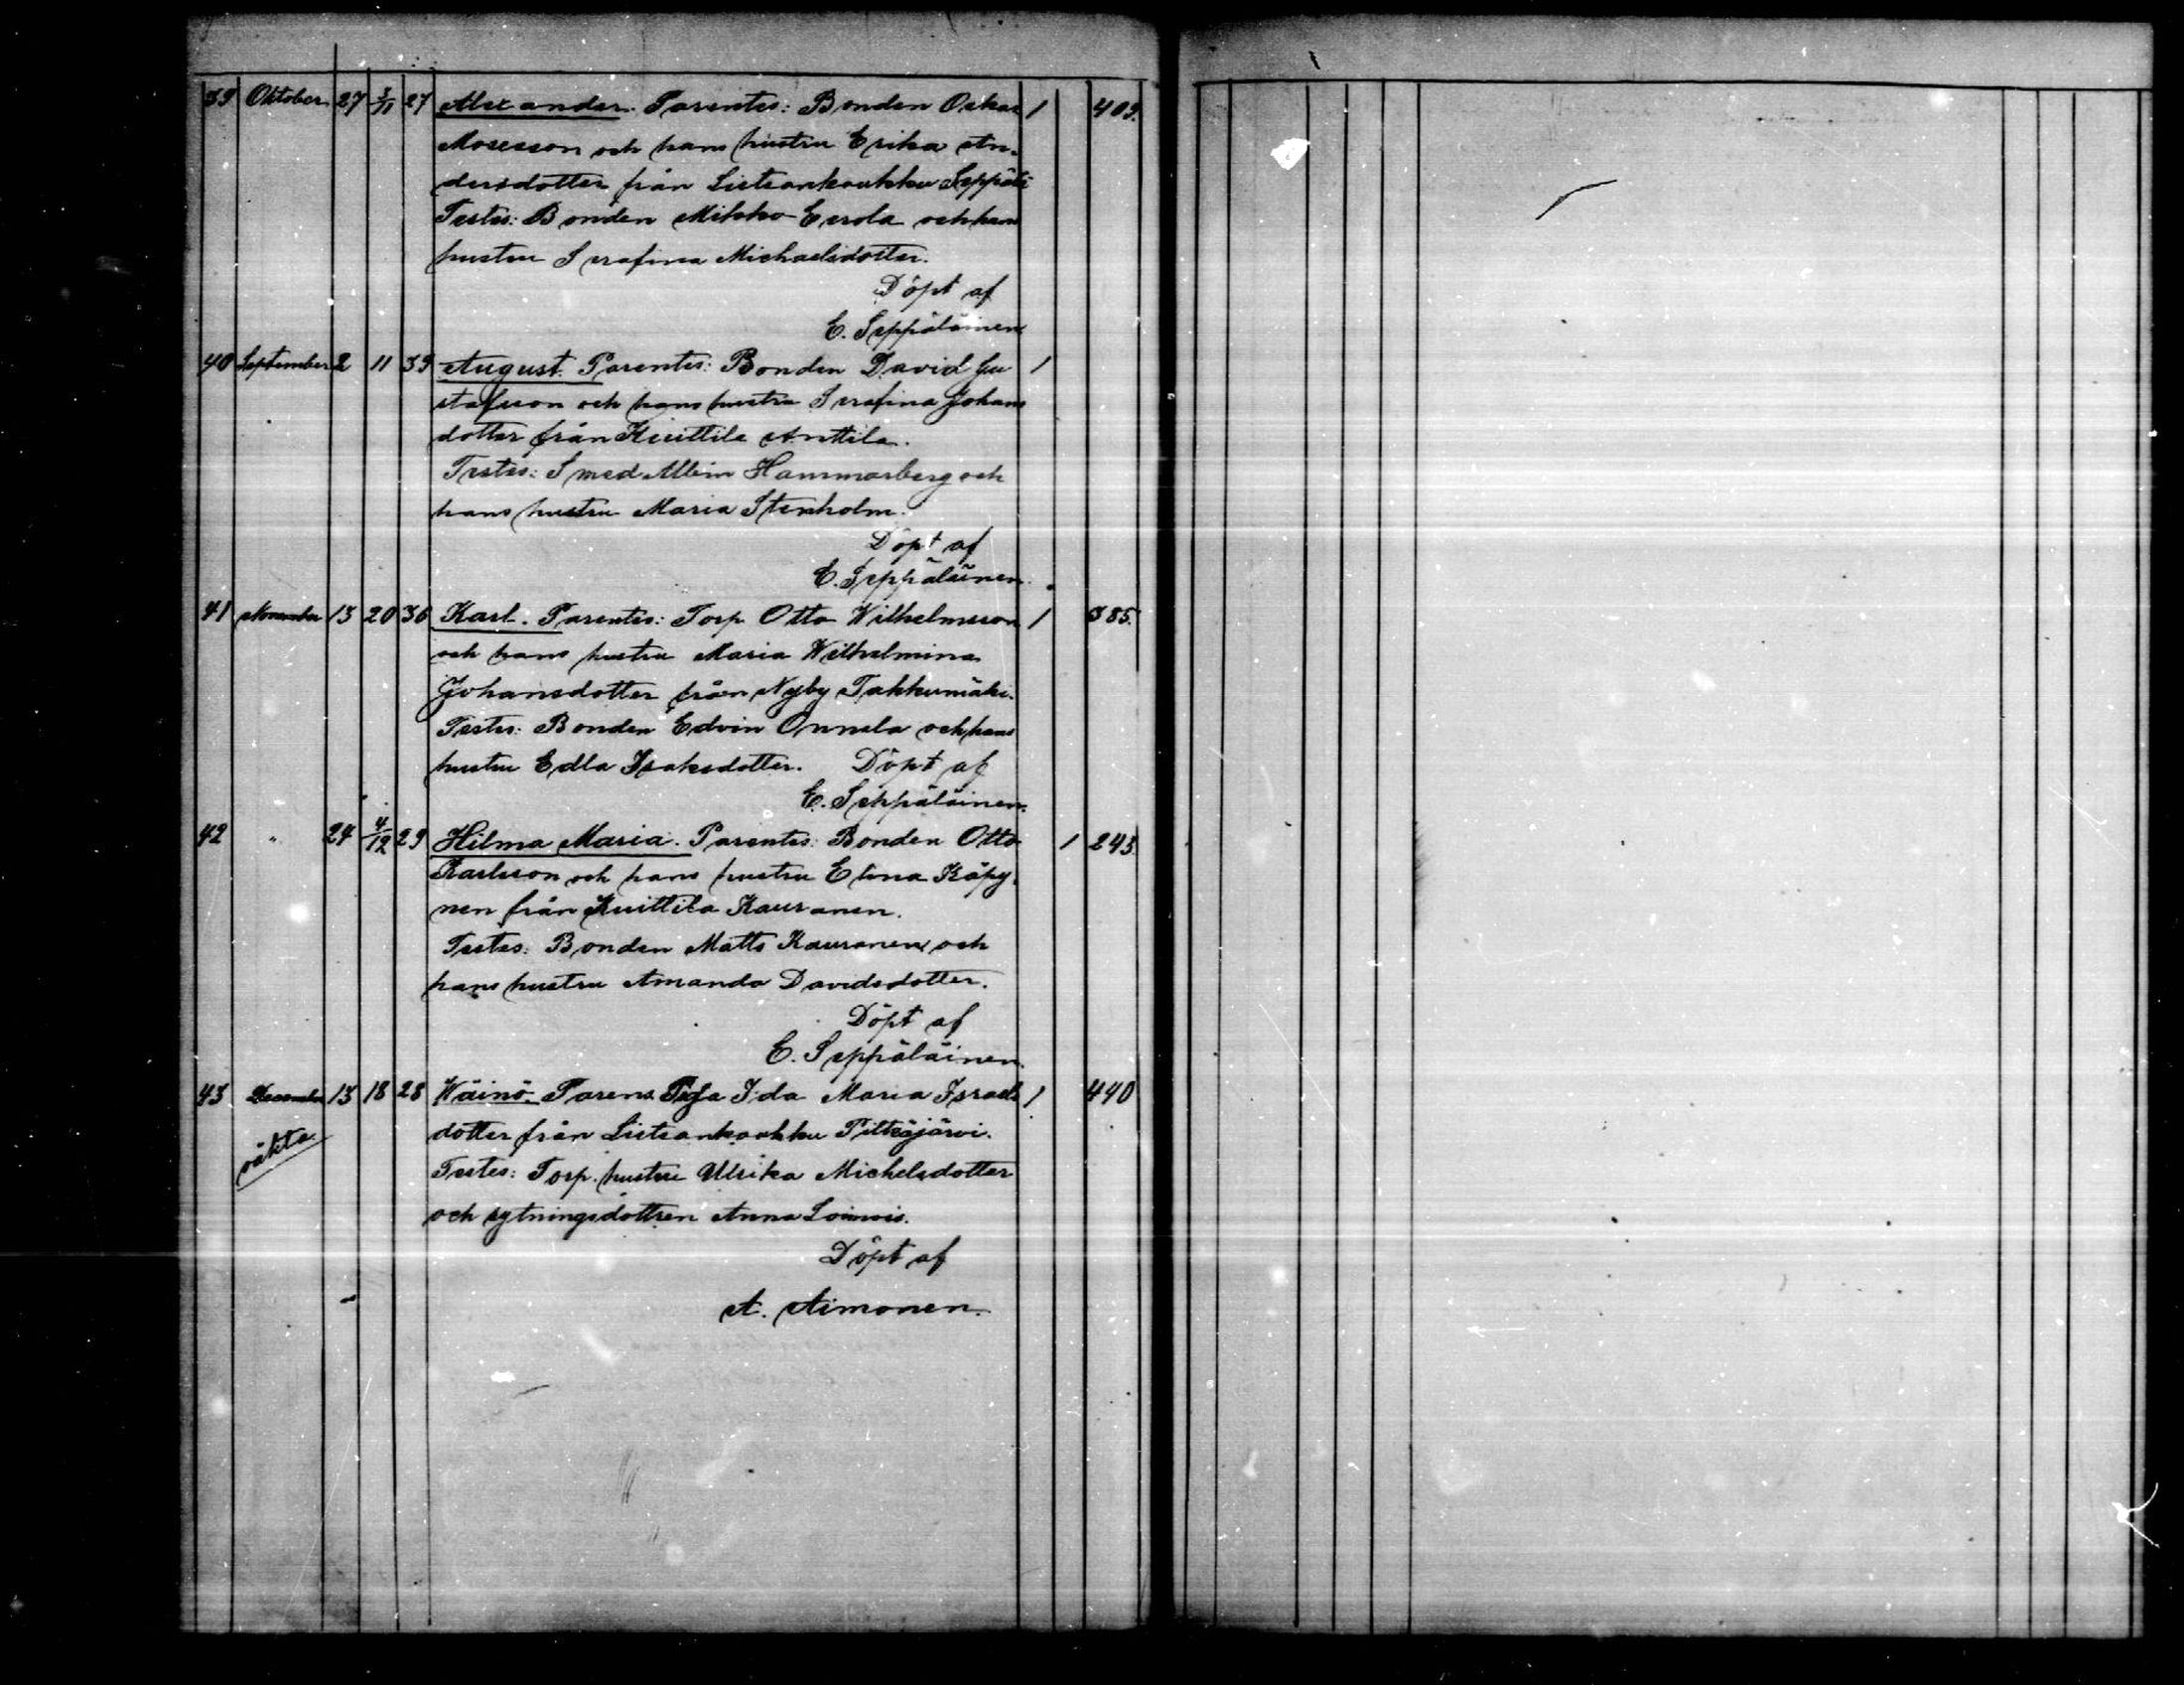 39 Oktober 27 3/11 27 Alexander. Parentes: Bonden Oskar 1 409.
Mosesson och hans hustru Erika An-
dersdotter från Listsankoukku Seppälä
Testes: Bonden Mikko Eerola och hans
hustru Serafina Michaelsdotter.
Döpt af
E. Seppäläinen
40 September 2 11 39 August. Parentes: Bonden David Gu 1
stafsson och hans hustru Serafina Johans
dotter från Kuittila Anttila.
Testes: Smed Albin Hammarberg och
hans hustru Maria Stenholm.
Döpt af
E. Seppäläinen.
41 November 13 20 36 Karl. Parentes: Torp Otto Wilhelmsson 1 385.
och hans hustru Maria Wilhelmina
Johansdotter från Nyby Takkumäki.
Testes: Bonden Edvin Onnela och hans
hustru Edla Isaksdotter. Döpt af
E. Seppäläinen.
42 " 24 4/12 29 Hilma Maria. Parentes: Bonden Otto 1 243
Karlsson och hans hustru Elina Käpy-
nen från Kuittila Kauranen.
Testes: Bonden Matts Kauranen och
hans hustru Amanda Davidsdotter.
Döpt af
E. Seppäläinen.
43 December 13 18 28 Wäinö. Parens Piga Ida Maria Israels 1 440
oäkta. dotter från Listsankoukku
Testes: Torp. hustru Ulrika Michelsdotter
och sytningsdottren Anna
Döpt af
A. Aimonen.